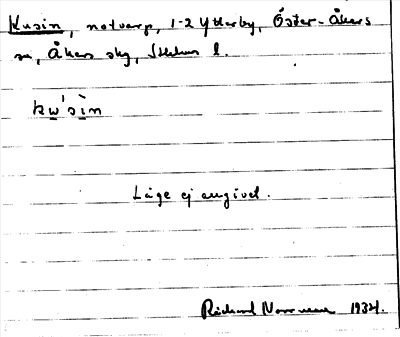 Kusin, notvarp, 1-2 Ytterby, Öster-Åkers
sn, Åkers skg, Sthlms l.
kw'sin
Läge ej angivet.
Rickard Norrman 1934.